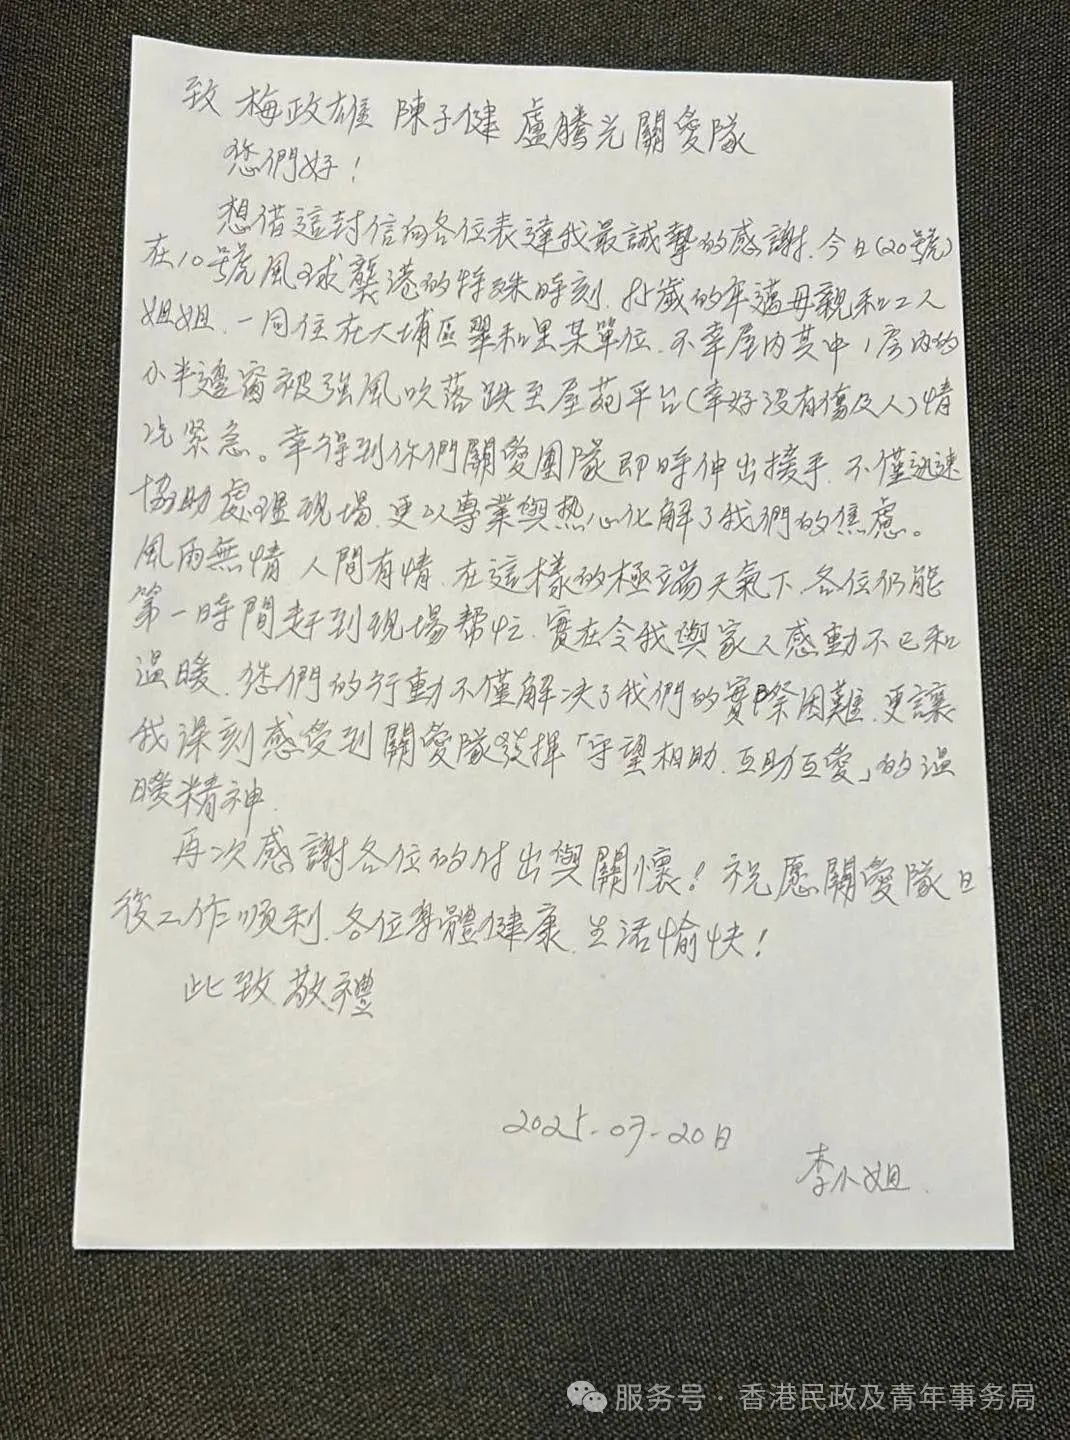 致 梅政雄 陳子健 盧騰光關愛隊
您們好！
想借這封信向各位表達我最誠摯的感謝.今日(20號)
在10號風球襲港的特殊時刻. 歲的年邁母親和工人
姐姐.一同住在大埔區翠和里某單位.不幸屋內其中1房內的
小半邊窗被强風吹落跌至屋苑平台(幸好沒有傷及人)情
况緊急。幸得到你們關愛團隊即時伸出援手.不僅迅速
協助處理現場.更以專業與热心化解了我們的焦慮。
風雨無情 人間有情.在這樣的極端天氣下.各位仍能
第一時間赶到現場帮忙.實在令我與家人感動不已和
温暖.您們的行動不僅解决了我們的實際困難.更讓
我深刻感受到關愛隊發揮「守望相助.互助互愛」的温
暖精神.
再次感謝各位的付出與關懷！祝愿關愛隊日
後工作順利.各位身體健康.生活愉快！
此致敬禮
2025-07-20日
李小姐.
服务号·香港民政及青年事务局